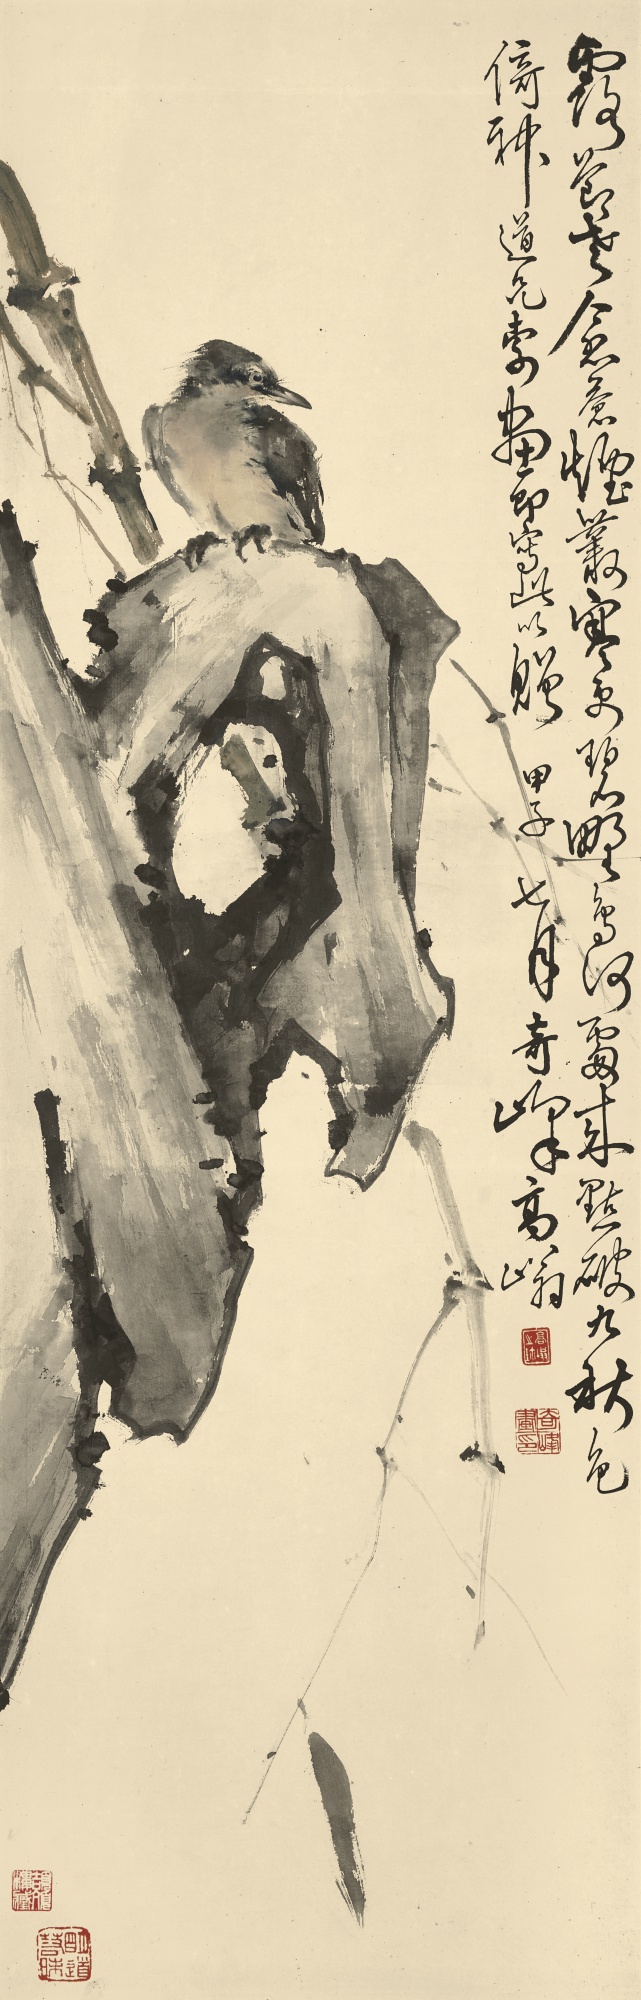 露節老愈蒼煙叢寒更碧野鳥何處來點破九秋色
倚神道兄索畫即寫此以贈 甲子七月奇峰高嵡
奇峰畫印